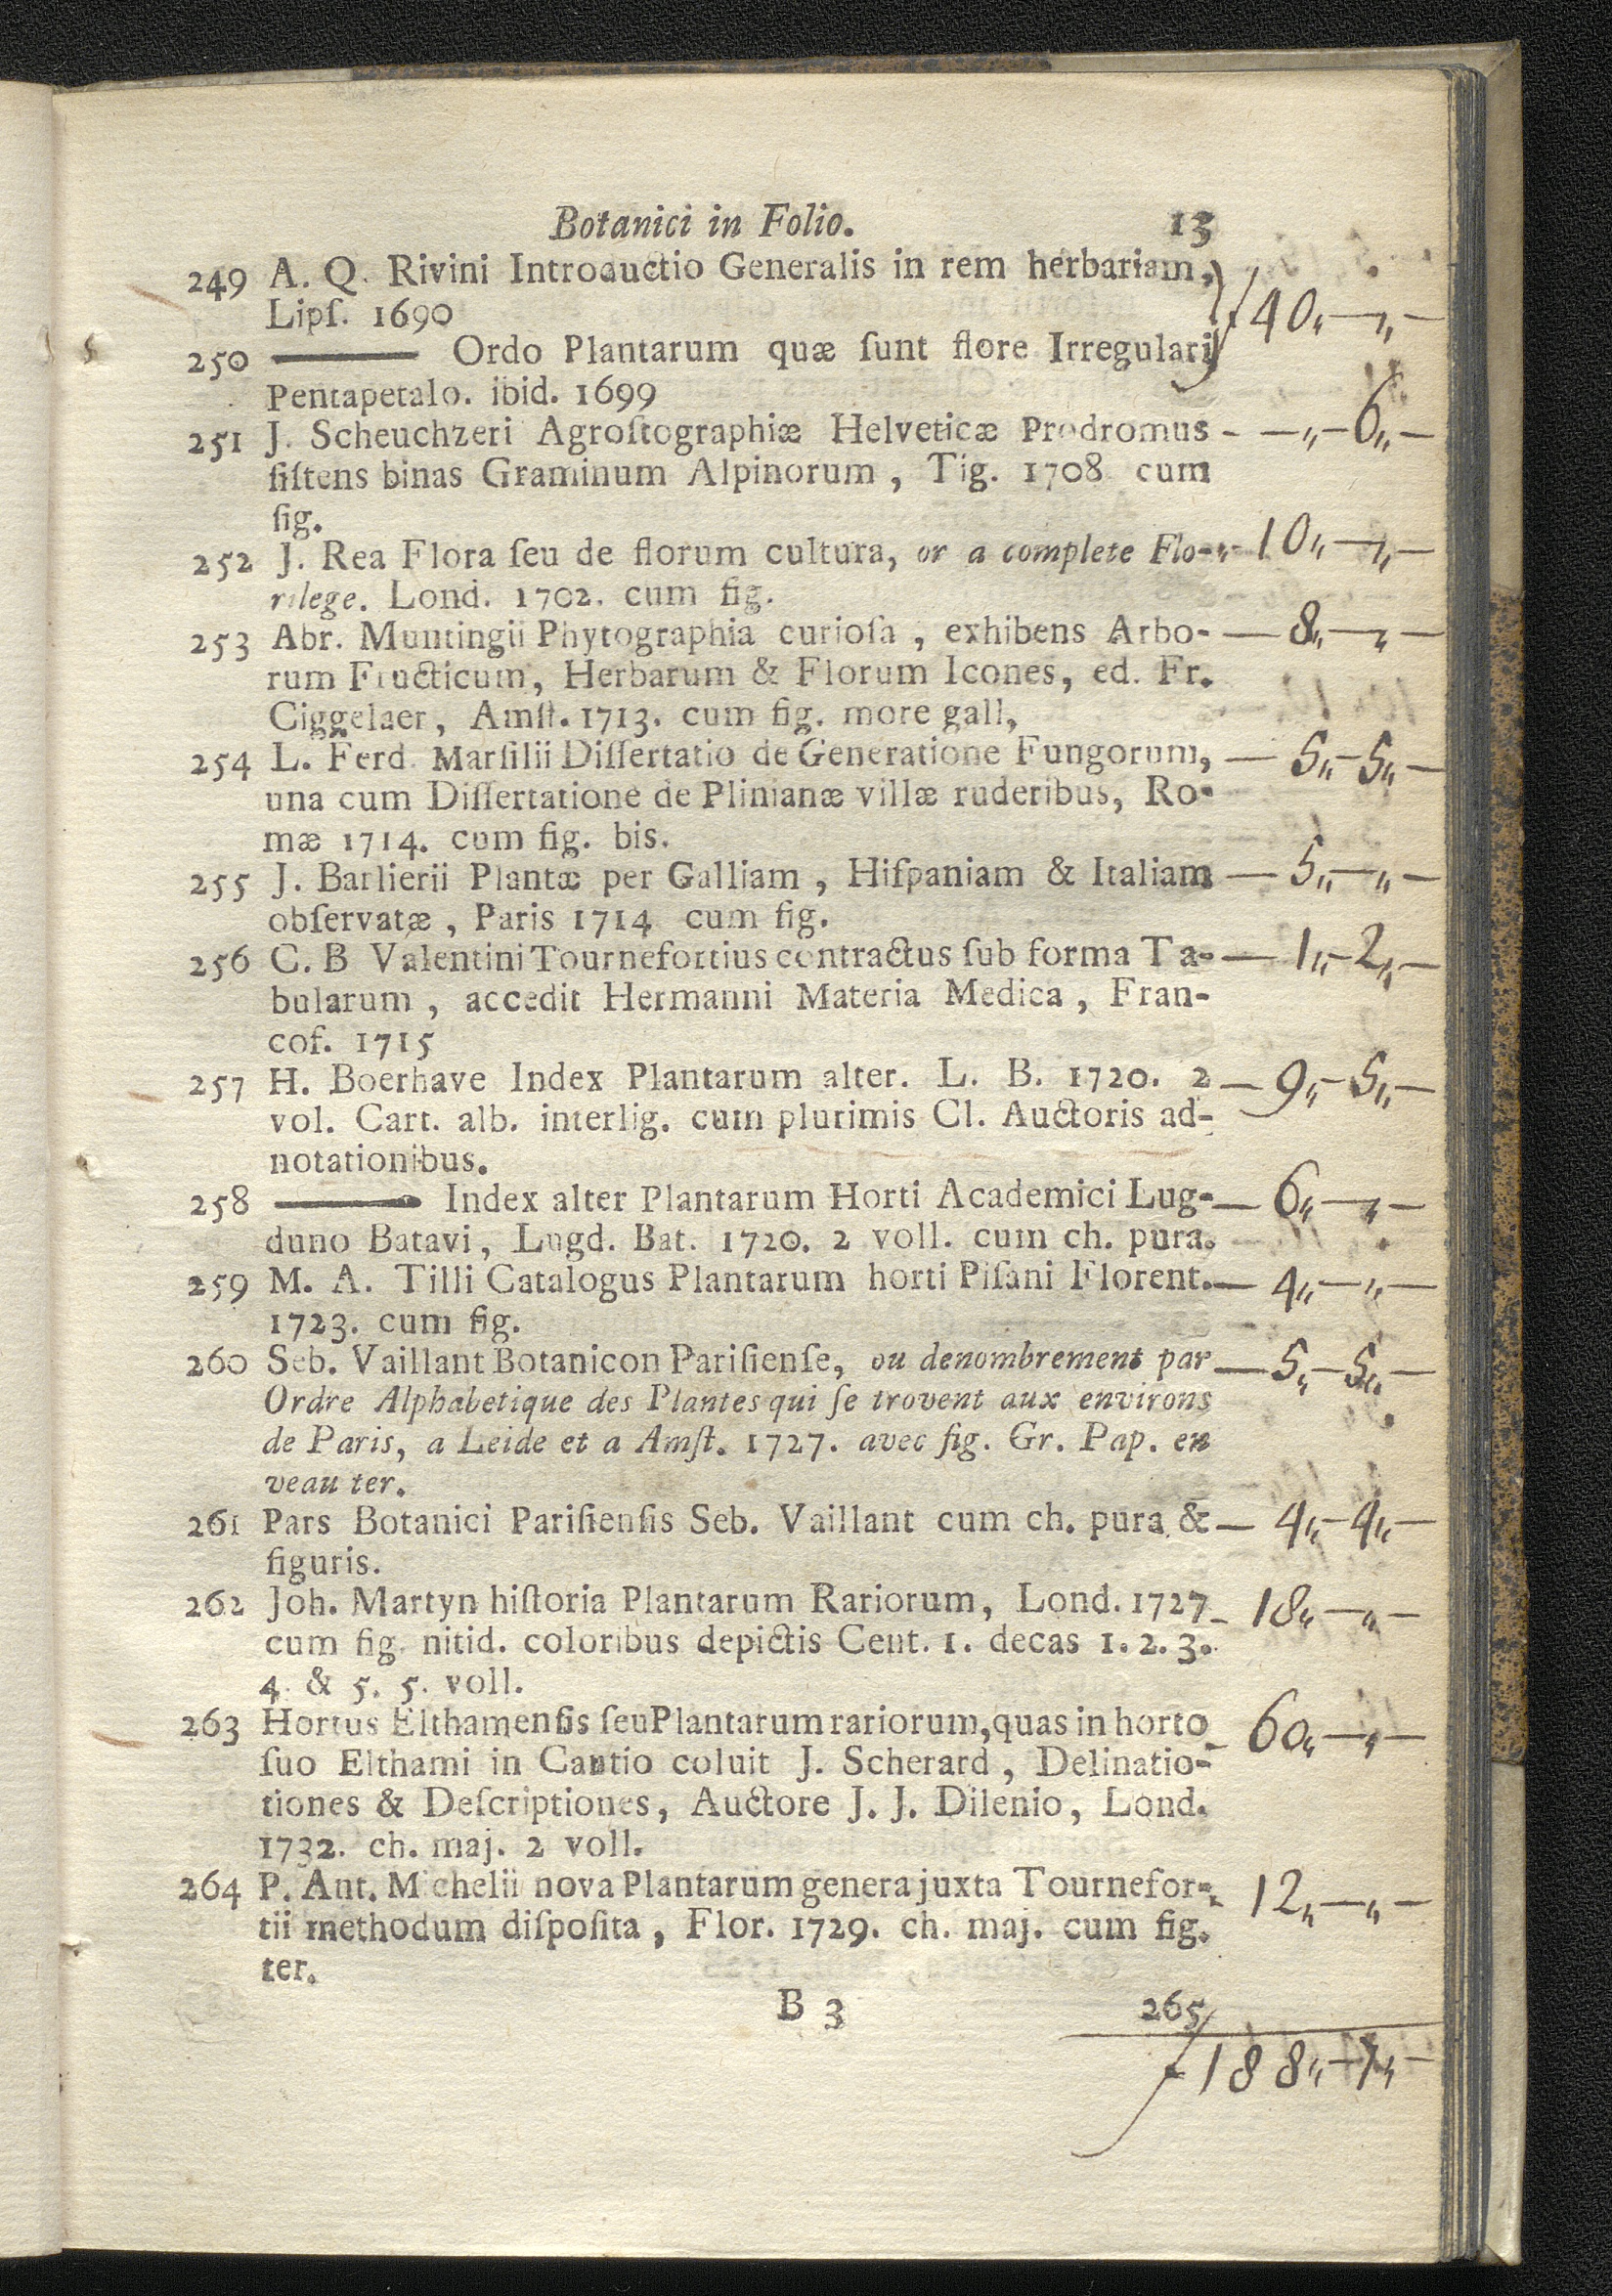 Botanici in Folio. 13
249 A. Q. Rivini Introductio Generalis in rem herbariam,
Lipſ. 1690 ƒ 40„—„—
250 ——— Ordo Plantarum quæ ſunt flore Irregulari
Pentapetalo. ibid. 1699
251 J. Scheuchzeri Agroſtographiæ Helveticæ Prodromus - —„—6„—
ſiſtens binas Graminum Alpinorum, Tig. 1708 cum
fig.
252 J. Rea Flora ſeu de florum cultura, or a complete Flo- - 10„—„—
rilege. Lond. 1702. cum fig.
253 Abr. Muntingii Phytographia curioſa, exhibens Arbo- — 8„—„—
rum Fructicum, Herbarum & Florum Icones, ed. Fr.
Ciggelaer, Amſt. 1713. cum fig. more gall,
254 L. Ferd. Marſilii Diſſertatio de Generatione Fungorum, — 5„—5„—
una cum Diſſertatione de Plinianæ villæ ruderibus, Ro-
mæ 1714. cum fig. bis.
255 J. Barlierii Plantæ per Galliam, Hiſpaniam & Italiam — 5„—„—
obſervatæ, Paris 1714 cum fig.
256 C. B Valentini Tournefortius contractus ſub forma Ta- — 1„—2„—
bularum, accedit Hermanni Materia Medica, Fran-
cof. 1715
257 H. Boerhave Index Plantarum alter. L. B. 1720. 2 — 9„—5„—
vol. Cart. alb. interlig. cum plurimis Cl. Auctoris ad-
notationibus.
258 ——— Index alter Plantarum Horti Academici Lug- — 6„—„—
duno Batavi, Lugd. Bat. 1720. 2 voll. cum ch. pura.
259 M. A. Tilli Catalogus Plantarum horti Piſani Florent. — 4„—„—
1723. cum fig.
260 Seb. Vaillant Botanicon Pariſienſe, ou denombrement par — 5„—5„—
Ordre Alphabetique des Plantes qui ſe trovent aux environs
de Paris, a Leide et a Amſt. 1727. avec fig. Gr. Pap. en
veau ter.
261 Pars Botanici Pariſienſis Seb. Vaillant cum ch. pura & — 4„—4„—
figuris.
262 Joh. Martyn hiſtoria Plantarum Rariorum, Lond. 1727 - 18„—„—
cum fig. nitid. coloribus depictis Cent. 1. decas 1. 2. 3.
4. & 5. 5. voll.
263 Hortus Elthamenſis ſeu Plantarum rariorum, quas in horto - 60„—„—
ſuo Elthami in Cantio coluit J. Scherard, Delinatio-
tiones & Deſcriptiones, Auctore J. J. Dilenio, Lond.
1732. ch. maj. 2 voll.
264 P. Ant. Michelii nova Plantarum genera juxta Tournefor- 12„—„—
tii methodum diſpoſita, Flor. 1729. ch. maj. cum fig.
ter.
B 3 265
ƒ 188„—7„—